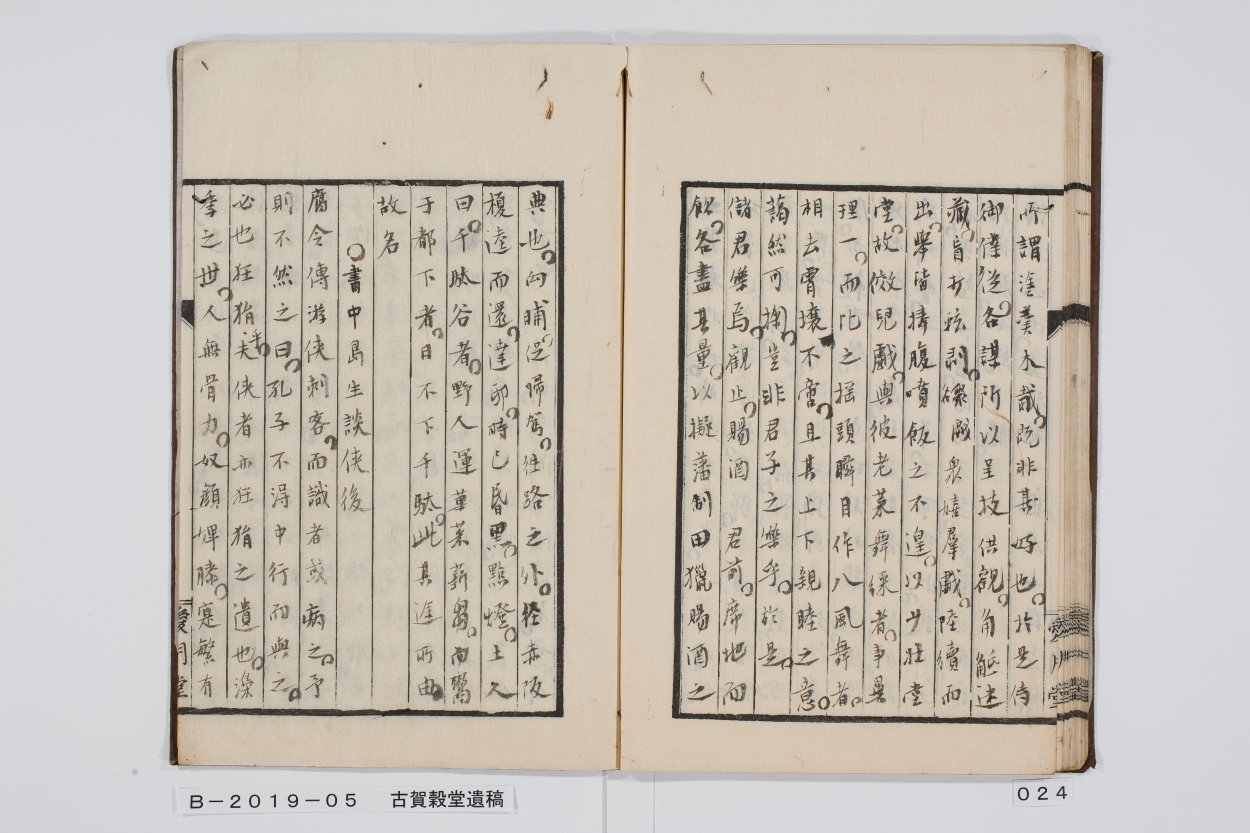 所謂塗羹木胾既非其好也於是侍
御僕從各謀所以呈技供觀角觝迷
藏盲打瞎剥磔蹶衆嬉羣戲陸續而
出擧皆捧腹噴飯之不遑以廿壯堂
堂故倣兒戲與彼老萊舞綵者事異
理一而比之搖頭瞬目作八風舞者
相去霄壤不啻且其上下親睦之意
藹然可掬豈非君子之樂乎於是
儲君樂焉觀止賜酒 君前席地而
飲各盡其量以擬藩制田獵賜酒之
典也向晡促歸駕往路之外徑赤坂
榎逵而還達邸時已昏黑點燈土人
曰千駄谷者野人運菓菜薪芻而鬻
于都下者日不下千駄此其途所由
故名
書中島生談俠後
腐令傳游俠刺客而識者或病之予
則不然之曰孔子不得中行而與之
必也狂狷乎夫俠者亦狂狷之遺也澡
季之世人無骨力奴顏婢膝寔繁有
愛月堂
愛月堂
B-2019-05 古賀穀堂遺稿
024